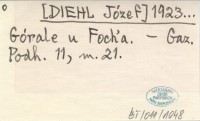 [DIEHL Józef] 1923...
Górale u Foch'a. – Gaz.
Podh. 11, m. 21.
BJ/011/1048